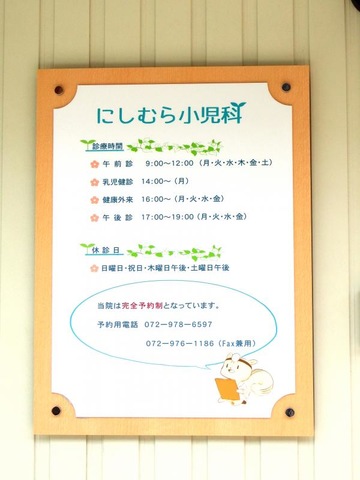 にしむら小児科
診療時間
午前診 9:00～12:00 (月・火・水・木・金・土)
乳児健診 14:00～ (月)
健康外来 16:00～ (月・火・水・金)
午後診 17:00～19:00 (月・火・水・金)
休診日
日曜日・祝日・木曜日午後・土曜日午後
当院は完全予約制となっています。
予約用電話 072－978－6597
072－976－1186 (Fax兼用)